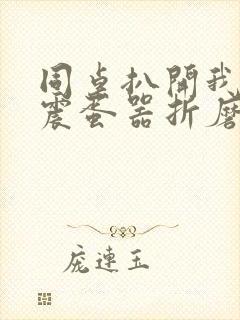 同桌扒開我
震蛋器折磨
庞連玉